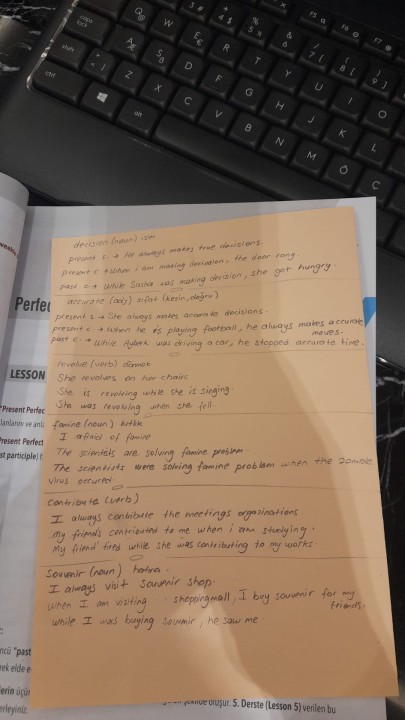 caps lock
Q
@
W
E
€
R
T
Y
U
I
O
shift
A
Æ
S
D
F
G
H
J
K
L
ctrl
Z
X
C
V
B
N
M
Ö
Ç
alt
F5
F6
F7
decision (noun) isim
present s. → He always makes true decisions.
present c → When i am making decision, the door rang.
past c → While Sasha was making decision, she got hungry.
accurate (adj) sıfat (kesin, doğru)
present s → She always makes accurate decisions.
present c → When he is playing football, he always makes accurate moves.
past c. → While Aybek was driving a car, he stopped accurate time.
revolve (verb) dönmek
She revolves on her chairs
She is revolving while she is singing.
She was revolving when she fell
famine (noun) kıtlık
I afraid of famine
The scientists are solving famine problem
The scientists were solving famine problem when the zombie
virus occured.
contribute (verb)
I always contribute the meetings orgazinations
my friends contributed to me when i am studying.
My friend tired while she was contributing to my works.
souvenir (noun) hatıra.
I always visit souvenir shop.
When I am visiting shoppingmall, I buy souvenir for my friends.
while I was buying souvenir, he saw me.
Perfe
LESSON
"Present Perfec
Present Perfec
st participle) f
ncü "past
rek elde e
lerin üçün
erleyiniz.
şeklinde oluşur. 5. Derste (Lesson 5) verilen bu